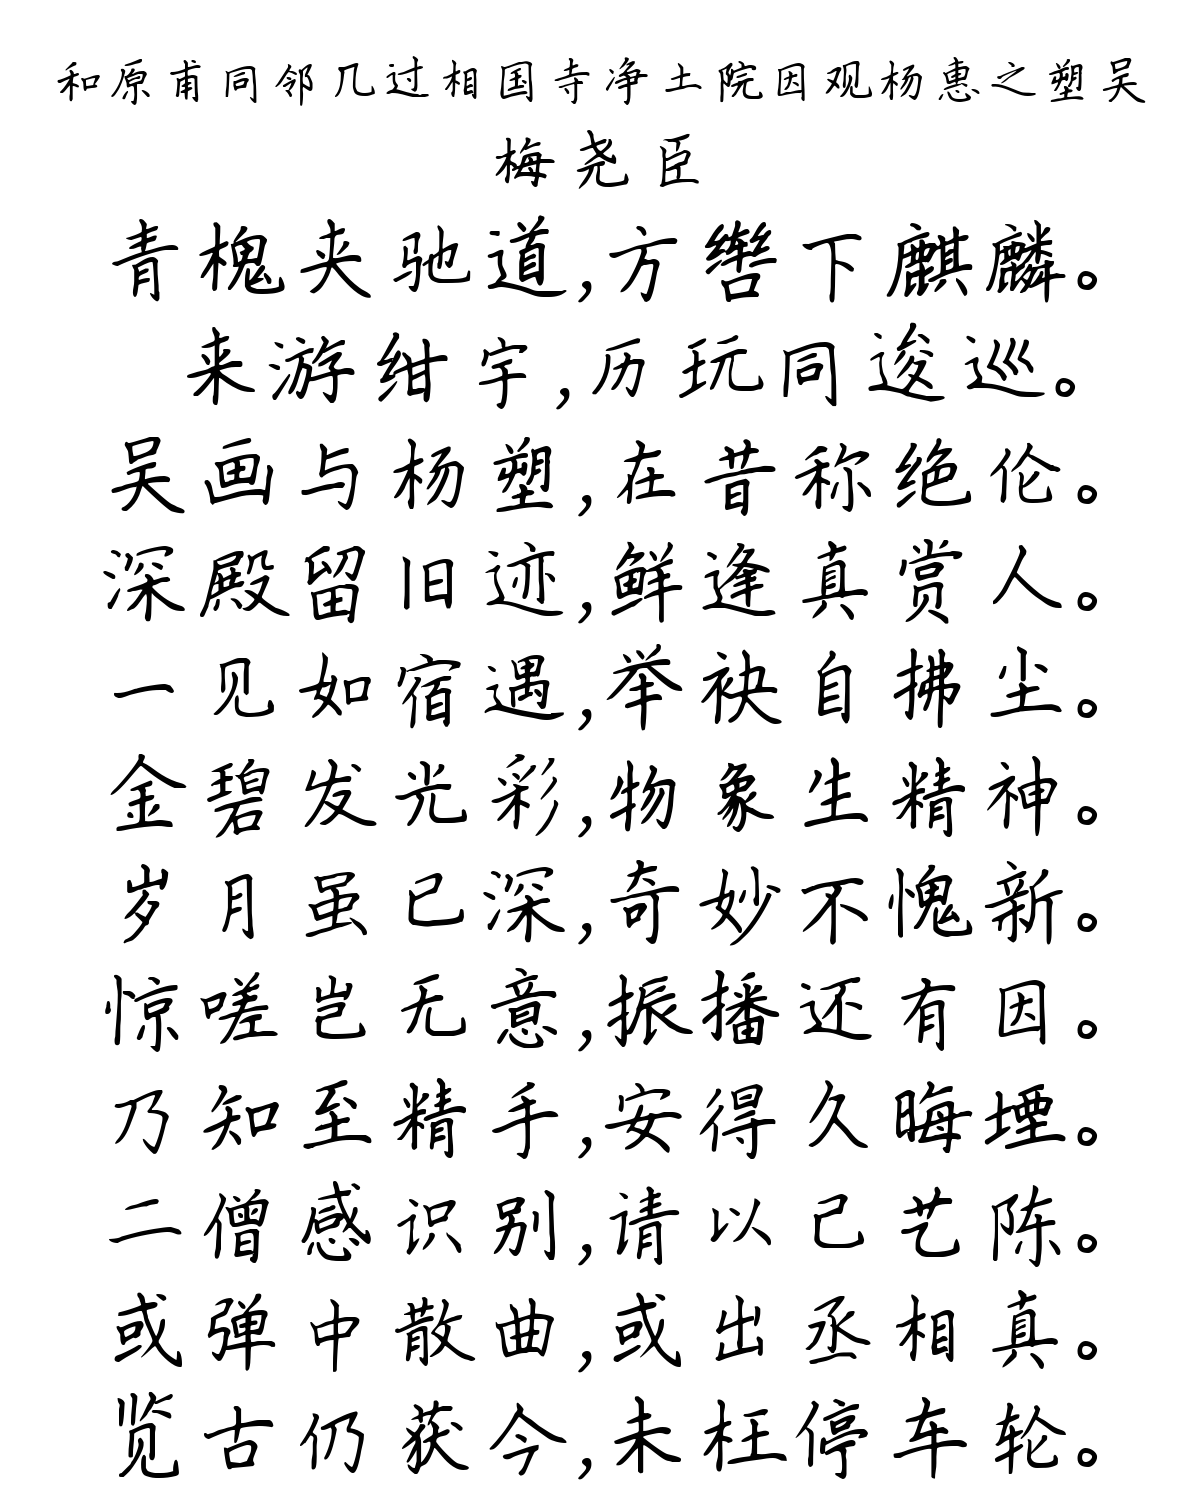 和原甫同邻几过相国寺净土院因观杨惠之塑吴
梅尧臣
青槐夹驰道,方辔下麒麟。
来游绀宇,历玩同逡巡。
吴画与杨塑,在昔称绝伦。
深殿留旧迹,鲜逢真赏人。
一见如宿遇,举袂自拂尘。
金碧发光彩,物象生精神。
岁月虽已深,奇妙不愧新。
惊嗟岂无意,振播还有因。
乃知至精手,安得久晦堙。
二僧感识别,请以己艺陈。
或弹中散曲,或出丞相真。
览古仍获今,未枉停车轮。